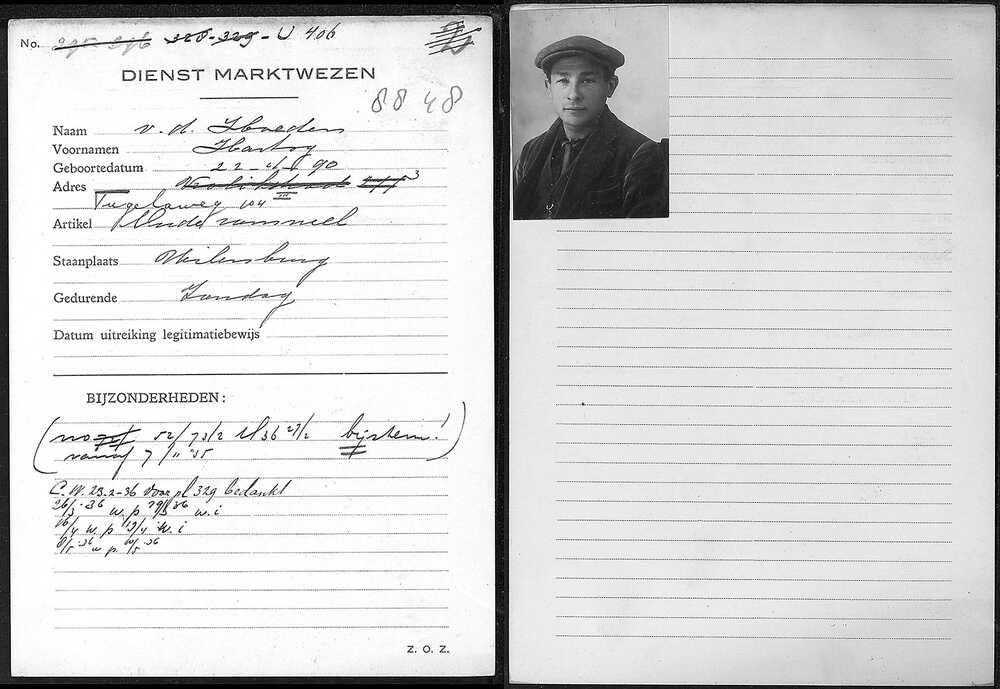 No. 295 296 328-329 - U 406
DIENST MARKTWEZEN
8848
Naam v. d.
Voornamen Hartog
Geboortedatum 22 90
Adres 3
Tugelaweg 104 III
Artikel Oude rommel
Staanplaats Uilenburg
Gedurende Zondag
Datum uitreiking legitimatiebewijs
BIJZONDERHEDEN:
52/ 73/2 36 27/2 bijstem!
vanaf 7/11 '35
C.W. 23-2-36 voor pl 329 bedankt
26/3-36 w. p 29/3 36 w. i
16/4 w. p 19/4 w. i
8/5-36 w p. 10/5-36
Z. O. Z.